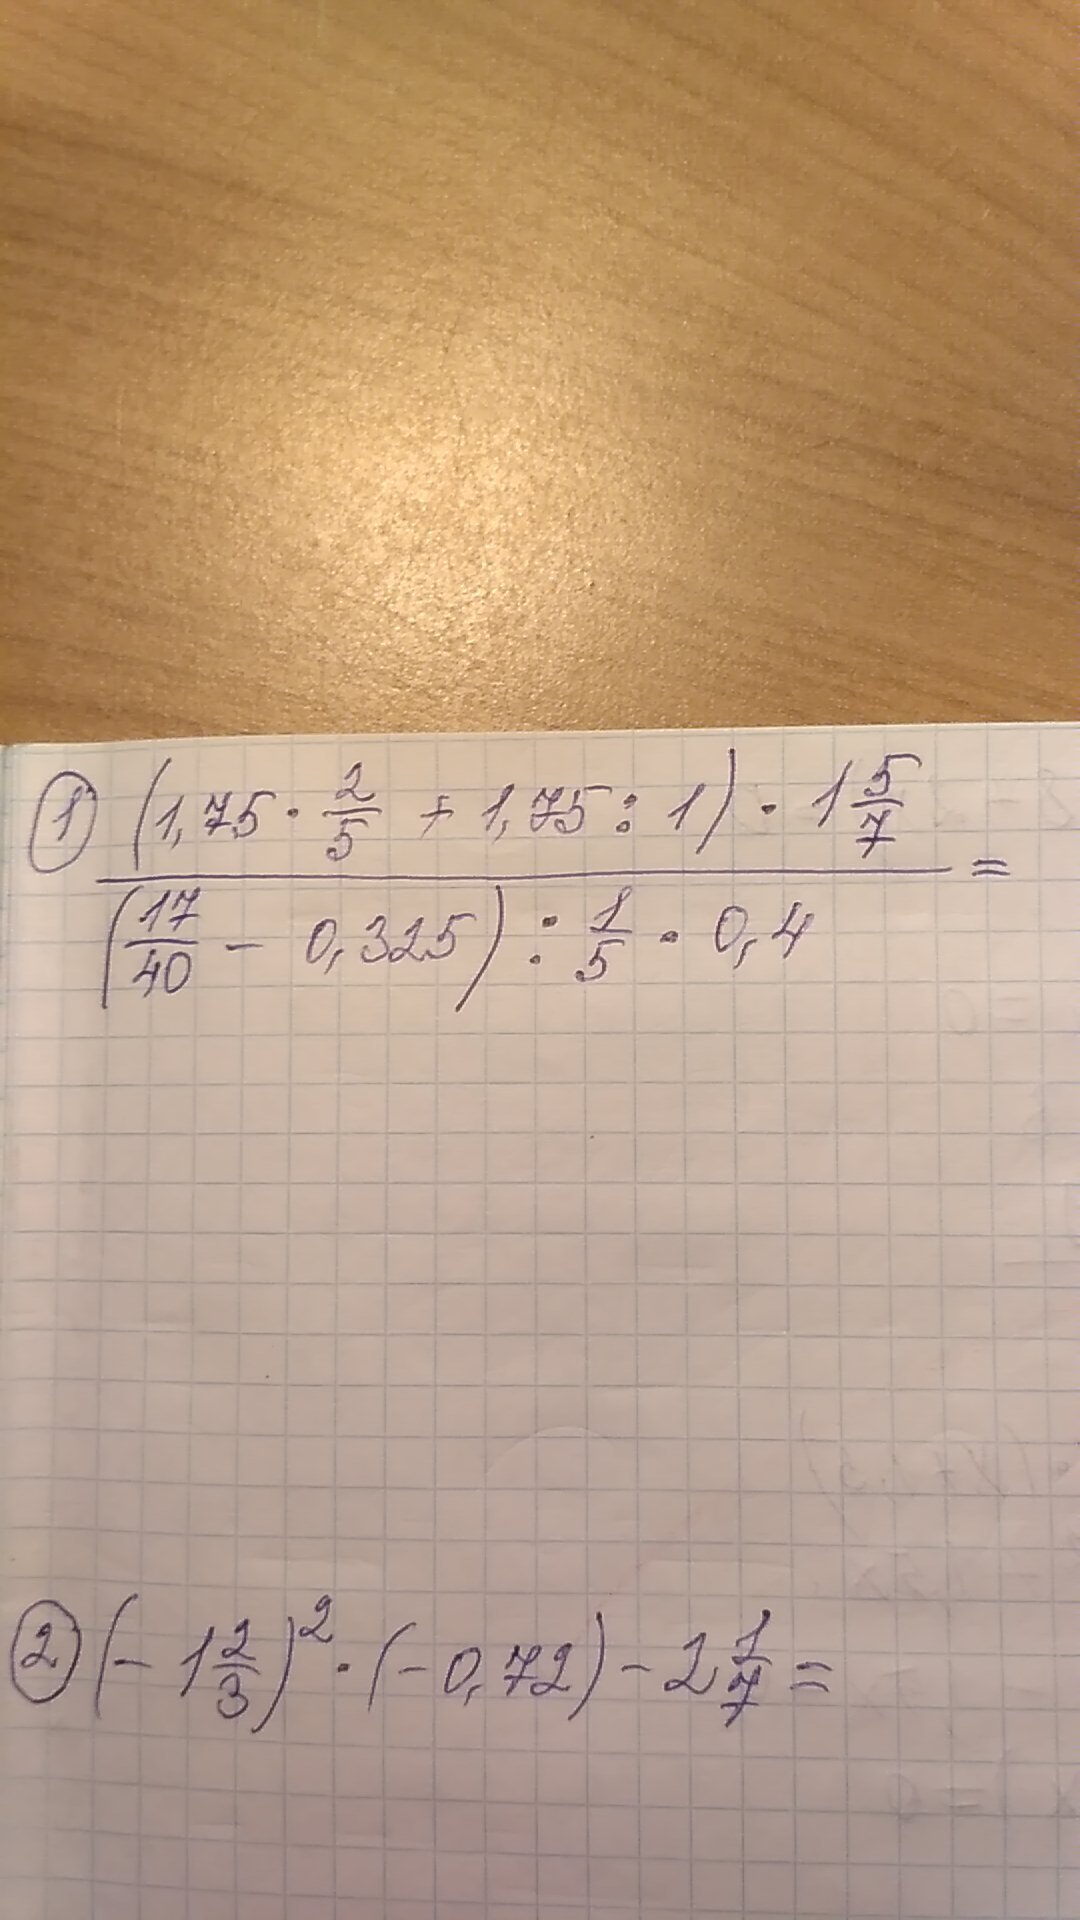 ① (1,75 · 2/5 + 1,75 : 1) · 1 5/7
(17/40 - 0,325) : 1/5 · 0,4 =
② (- 1 2/3)² · (-0,72) - 2 1/7 =